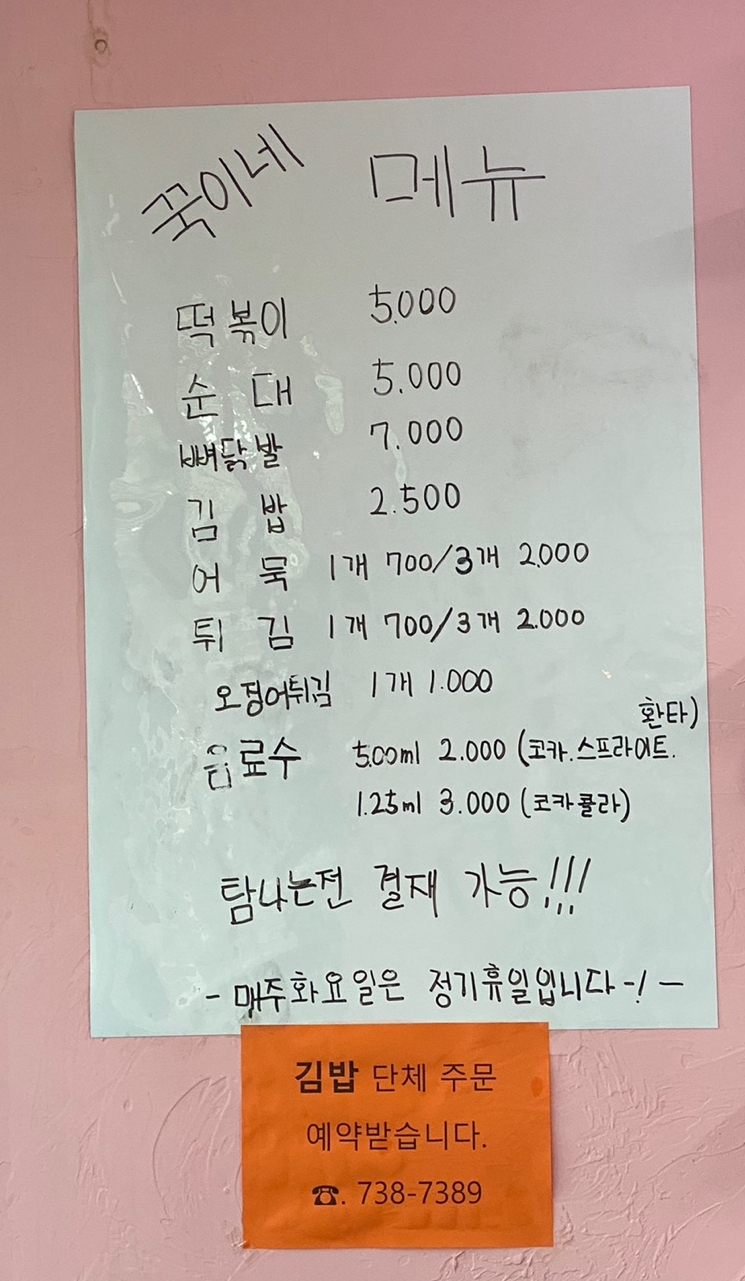 꾹이네 메뉴
떡볶이 5.000
순대 5.000
뼈닭발 7.000
김밥 2.500
어묵 1개 700/3개 2.000
튀김 1개 700/3개 2.000
오징어튀김 1개 1.000
음료수 500ml 2.000 (코카.스프라이트.환타)
1.25ml 3.000 (코카콜라)
탐나는전 결재 가능!!!
- 매주화요일은 정기휴일입니다-! -
김밥 단체 주문
예약받습니다.
☎. 738-7389